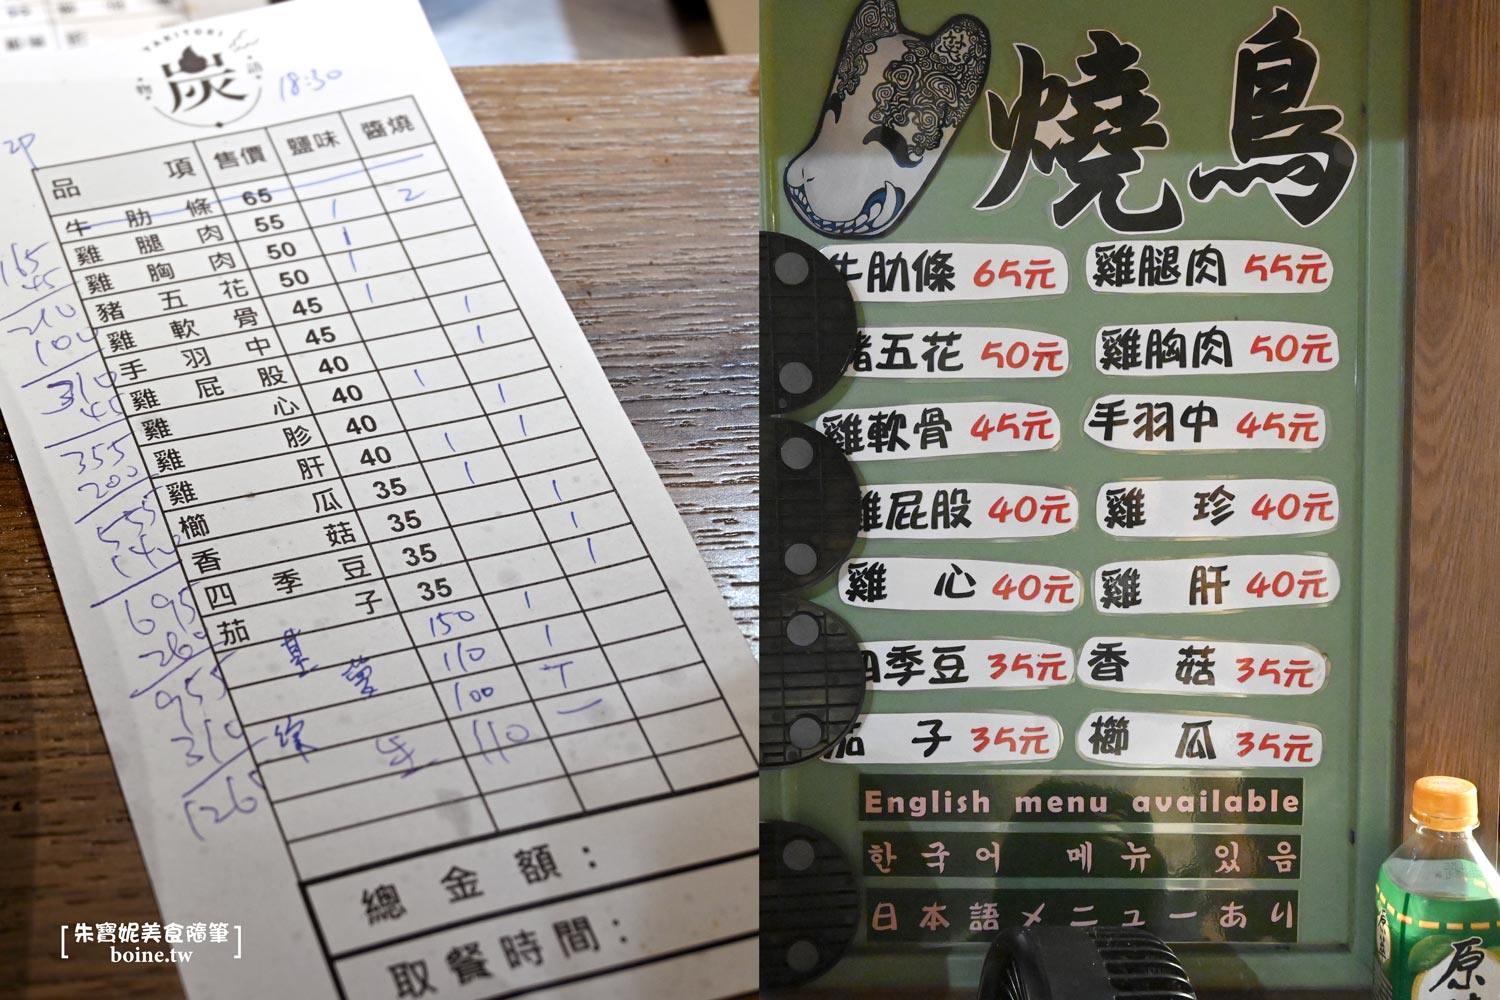 YAKITORI
炭
物 語
18:30
2P
品項 售價 鹽味 醬燒
牛肋條 65
雞腿肉 55 1 2
雞胸肉 50 1
豬五花 50 1
雞軟骨 45 1
手羽中 45 1
雞屁股 40 1
雞心 40 1
雞胗 40 1
雞肝 40 1 1
櫛瓜 35 1
香菇 35 1
四季豆 35 1
茄子 35 1
150 1
110 1
100
110
165
45
210
100
310
45
355
200
555
140
695
260
955
310
1265
總金額：
取餐時間：
[朱寶妮美食隨筆]
boine.tw
燒鳥
牛肋條 65元
雞腿肉 55元
豬五花 50元
雞胸肉 50元
雞軟骨 45元
手羽中 45元
雞屁股 40元
雞珍 40元
雞心 40元
雞肝 40元
四季豆 35元
香菇 35元
茄子 35元
櫛瓜 35元
English menu available
한국어 메뉴 있음
日本語メニューあり
原